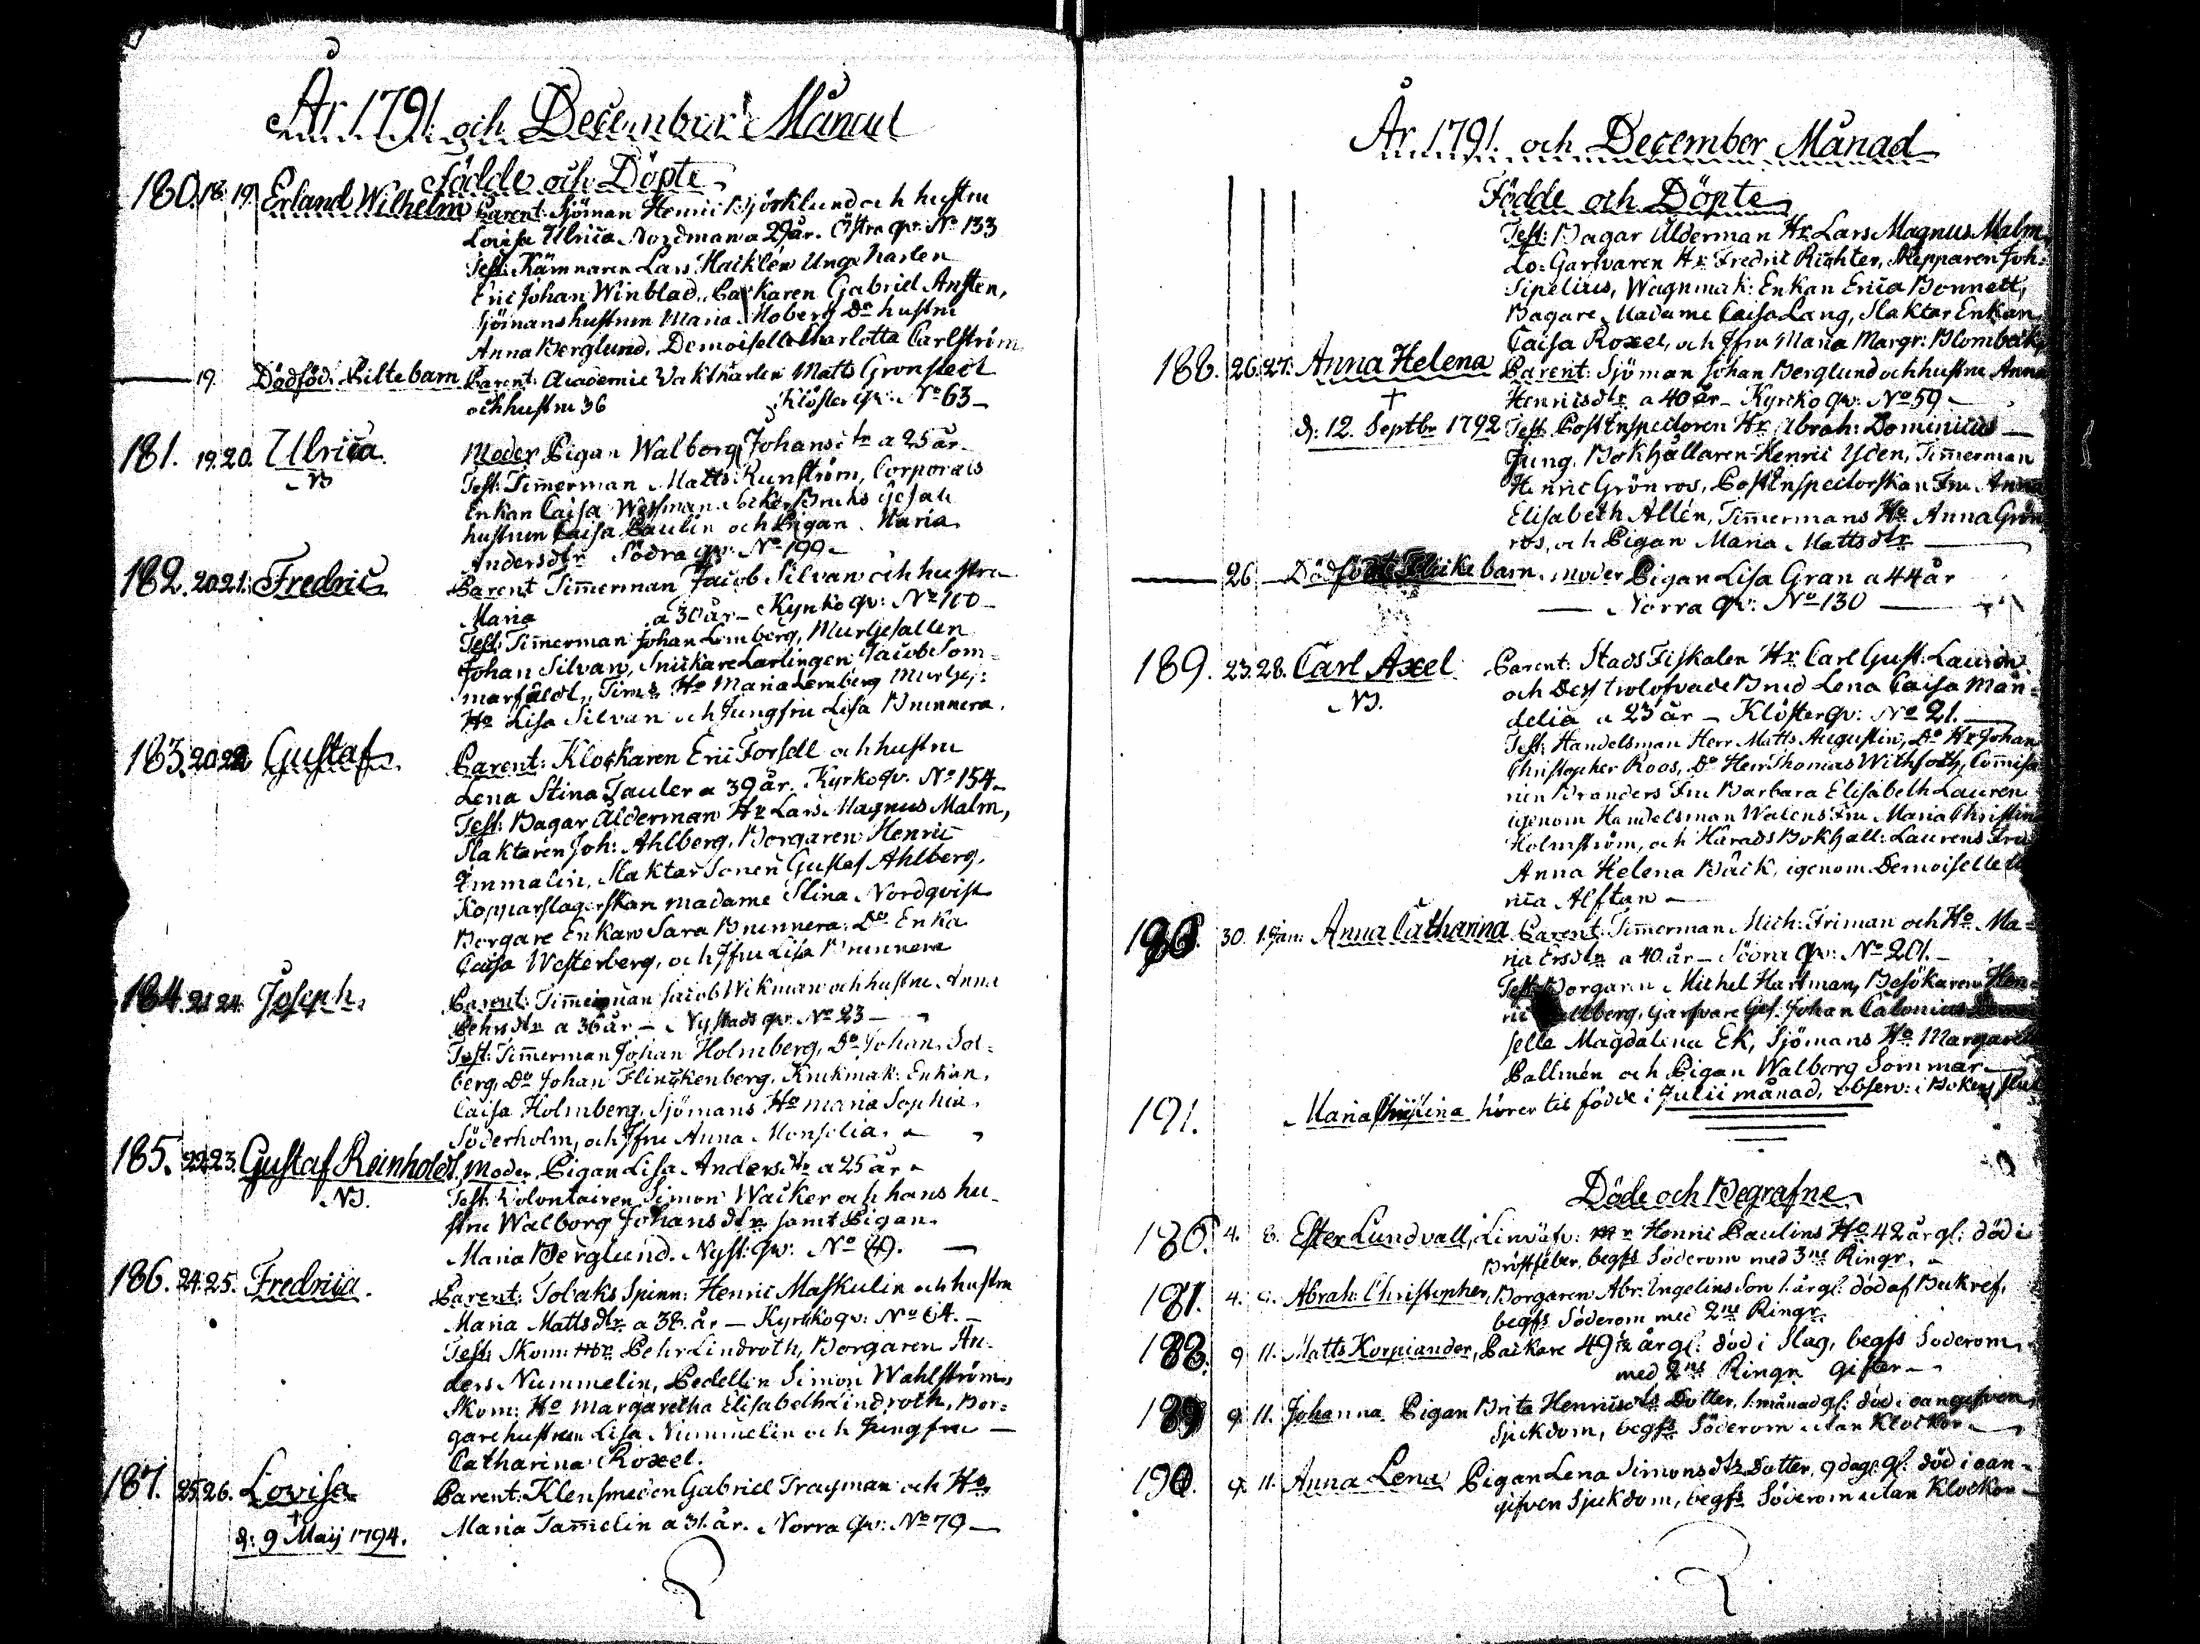 År 1791. och December Månad
Födde och Döpte
180. 18. 19. Erland Wilhelm Parent: Sjöman Henric Björklund och hustru
Lovisa Ulrica Nordman a 29 år. Östra qv: No 133
Test: Kämnären Lars Haicklén Unga Karlen
Eric Johan Winblad, Backaren Gabriel Ansten,
Sjömanshustrun Maria Moberg Do hustru
Anna Berglund. Demoiselle Charlotta Carlström
19. Dödfödt Piltebarn Parent: Academie Vaktkarlen Matts Gronstedt
och hustru 36 Kloster qv: No 63
181. 19. 20. Ulrica Moder Pigan Walborg Johansdtr a 25 år.
NB Test: Timmerman Matts Runström, Corporals
Enkan Caisa Socker Bruks Gesäll
hustrun Caisa Paulin och Pigan Maria
Andersdtr Södra qv: No 199
182. 20. 21. Fredric Parent Timmerman Jacob Silvan och hustru
Maria a 30 år Kyrko qv: No 100
Test: Timmerman Johan Lemberg, Murgesällen
Johan Silvan, Snickare Lärlingen Jacob Som-
marfäldt, Tim: Ho Maria Lemberg Murges:
Ho Lisa Silvan och Jungfru Lisa Brunnera.
183. 20. 22. Gustaf Parent: Klockaren Eric Forsell och hustru
Lena Stina Tauler a 39 år. Kyrko qv. No 154
Test: Bagar Ålderman Hr Lars Magnus Malm,
Slaktaren Joh: Ahlberg, Borgaren Henric
Ammalin, Slaktar Sonen Gustaf Ahlberg,
Kopparslagerskan madame Stina Nordqvist
Borgare Enkan Sara Brunnera. Do Enka
Caisa Westerberg, och Jfru Lisa Brunnera
184. 21. 24. Joseph. Parent: Timmerman Jacob Wikman och hustru Anna
Pehrsdtr a 36 år Nystads qv. No 23
Test: Timmerman Johan Holmberg, Do Johan Sol-
berg, Do Johan Flinckenberg, Krukmak: Enkan,
Caisa Holmberg, Sjömans Ho Maria Sophia
Söderholm, och Jfru Anna Monselia.
185. 22. 23. Gustaf Reinholdt. Moder Pigan Lisa Andersdtr a 25 år
NB. Test: Volontairen Simon Wacker och hans hu-
stru Walborg Johansdtr samt Pigan
Maria Berglund. Nyst: qv: No 49.
186. 24. 25. Fredrica. Parent: Tobaks Spinn: Henric Maskulin och hustru
Maria Mattsdtr a 38. år Kyrko qv: No 64.
Test: Skom: Pehr Lindroth, Borgaren An-
ders Nummelin, Pedellen Simon Wahlström,
Skom: Ho Margaretha Elisabeth Lindroth, Bor-
gare hustrun Lisa Nummelin och Jungfru
Catharina Roxel.
187. 25. 26. Lovisa Parent: Klensmeden Gabriel Tragman och Ho
† d: 9 Maij 1794. Maria Tammelin a 31. år. Norra qv: No 79
År 1791. och December Månad
Födde och Döpte
Test: Bagar Ålderman Hr Lars Magnus Malm
Lo-Garfvaren Hr Fredric Richter, Skepparen Joh:
Sipelius, Wagnmak: Enkan Erica Bonnett,
Bagare Madame Caisa Lang, Slaktar Enkan
Caisa Roxel, och Jfru Maria Margr: Blombäck
188. 26. 27. Anna Helena Parent: Sjöman Johan Berglund och hustru Anna
† Henricsdtr a 40 år Kyrko qv: No 59
d: 12. Septbr 1792 Test. PostInspectoren Hr Abrah: Dominicus
Jung. Bokhållaren Henric Ydén, Timmerman
Henric Grönros, PostInspectorskan Fru Anna
Elisabeth Allén, Timmermans Ho Anna Grön
ros, och Pigan Maria Mattsdtr
26 Dödfödt Flicke barn. Moder Pigan Lisa Gran a 44 år
Norra qv: No 130
189. 23. 28. Carl Axel Parent: Stads Fiskalen Hr Carl Gust: Lauren
NB. och Dess trolofvade Brud Lena Caisa Män-
delia a 23 år Kloster qv: No 21.
Test: Handelsman Herr Matts Augustin, Do Hr Johan
Christopher Roos, Do Herr Thomas Withfoth, Commissa
rien Branders Fru Barbara Elisabeth Lauren
igenom Handelsman Walens Fru Maria Christina
Holmström, och Härads Bokhåll: Laurens Fru
Anna Helena Bäck, igenom Demoiselle
rica Alftan
190. 30. 1. Jan: Anna Catharina Parent: Timmerman Mich: Friman och Ho Ma-
ria Ersdtr a 40 år Södra qv: No 201.
Test: Borgaren Michel Hartman, Besökaren Hen-
ric Garfvare Ges. Johan Calonius
selle Magdalena Ek, Sjömans Ho Margareta
Pallmén och Pigan Walborg Sommar
191. Maria Christina hörer til födde i Julii månad, observ: i Bokens slut
Döde och Begrafne
186. 4. 8. Ester Lundvall, Linväfv: Mr Henric Paulins Ho 42 år gl: död i
Bröstfeber, begfs Söderom med 3ne Ringr.
187. 4. Abrah: Christopher, Borgaren Abr: Engelins Son 1. år gl. död af Bukref,
begfs Söderom med 2ne Ringr.
188. 9 11. Matts Korpiander, Packare 49 år gl: död i Slag, begfs Söderom
med 2ne Ringr gifter
189 9. 11. Johanna Pigan Brita Henricsdtrs Dotter, 1. månad gl: död i oangifven
Sjukdom, begfs Söderom utan Klockor
190. 9. 11. Anna Lena Pigan Lena Simonsdtrs Dotter, 9 dagr gl: död i oan-
gifven Sjukdom, begfs Söderom utan Klockor